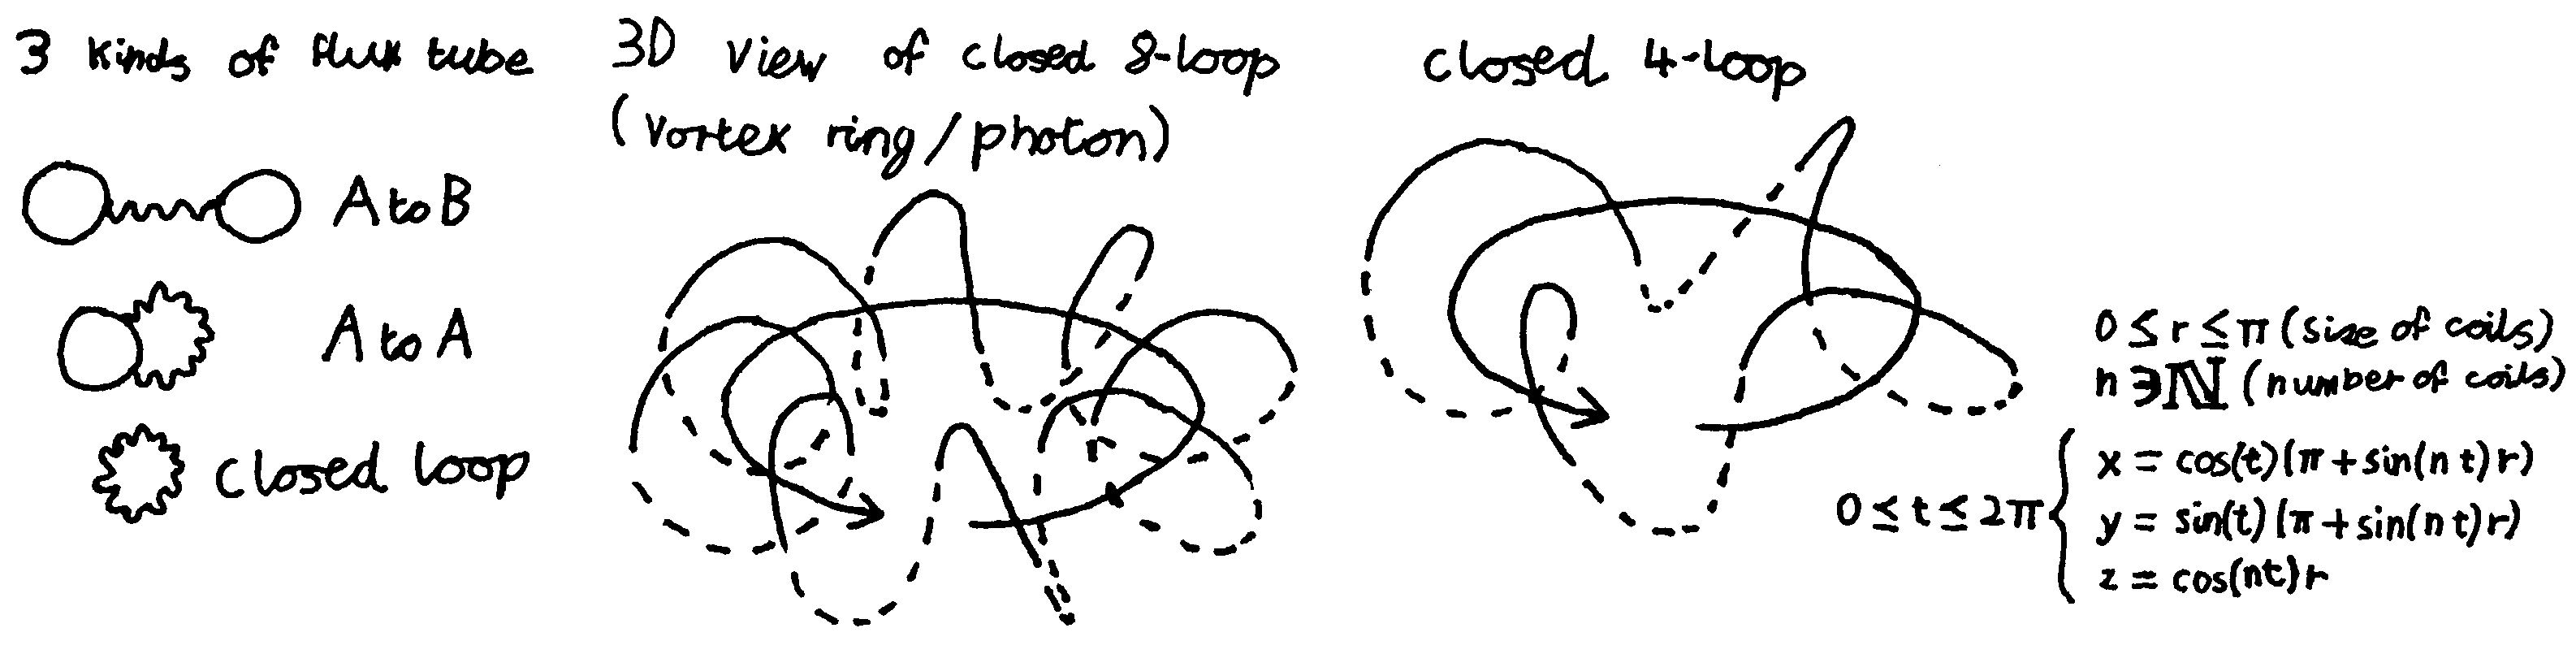 3 kinds of flux tube
A to B
A to A
closed loop
3D view of closed 8-loop
(vortex ring/photon)
closed 4-loop
0 ≤ r ≤ π (size of coils)
n ∋ ℕ (number of coils)
0 ≤ t ≤ 2π {
x = cos(t)(π + sin(n t) r)
y = sin(t)(π + sin(n t) r)
z = cos(nt) r